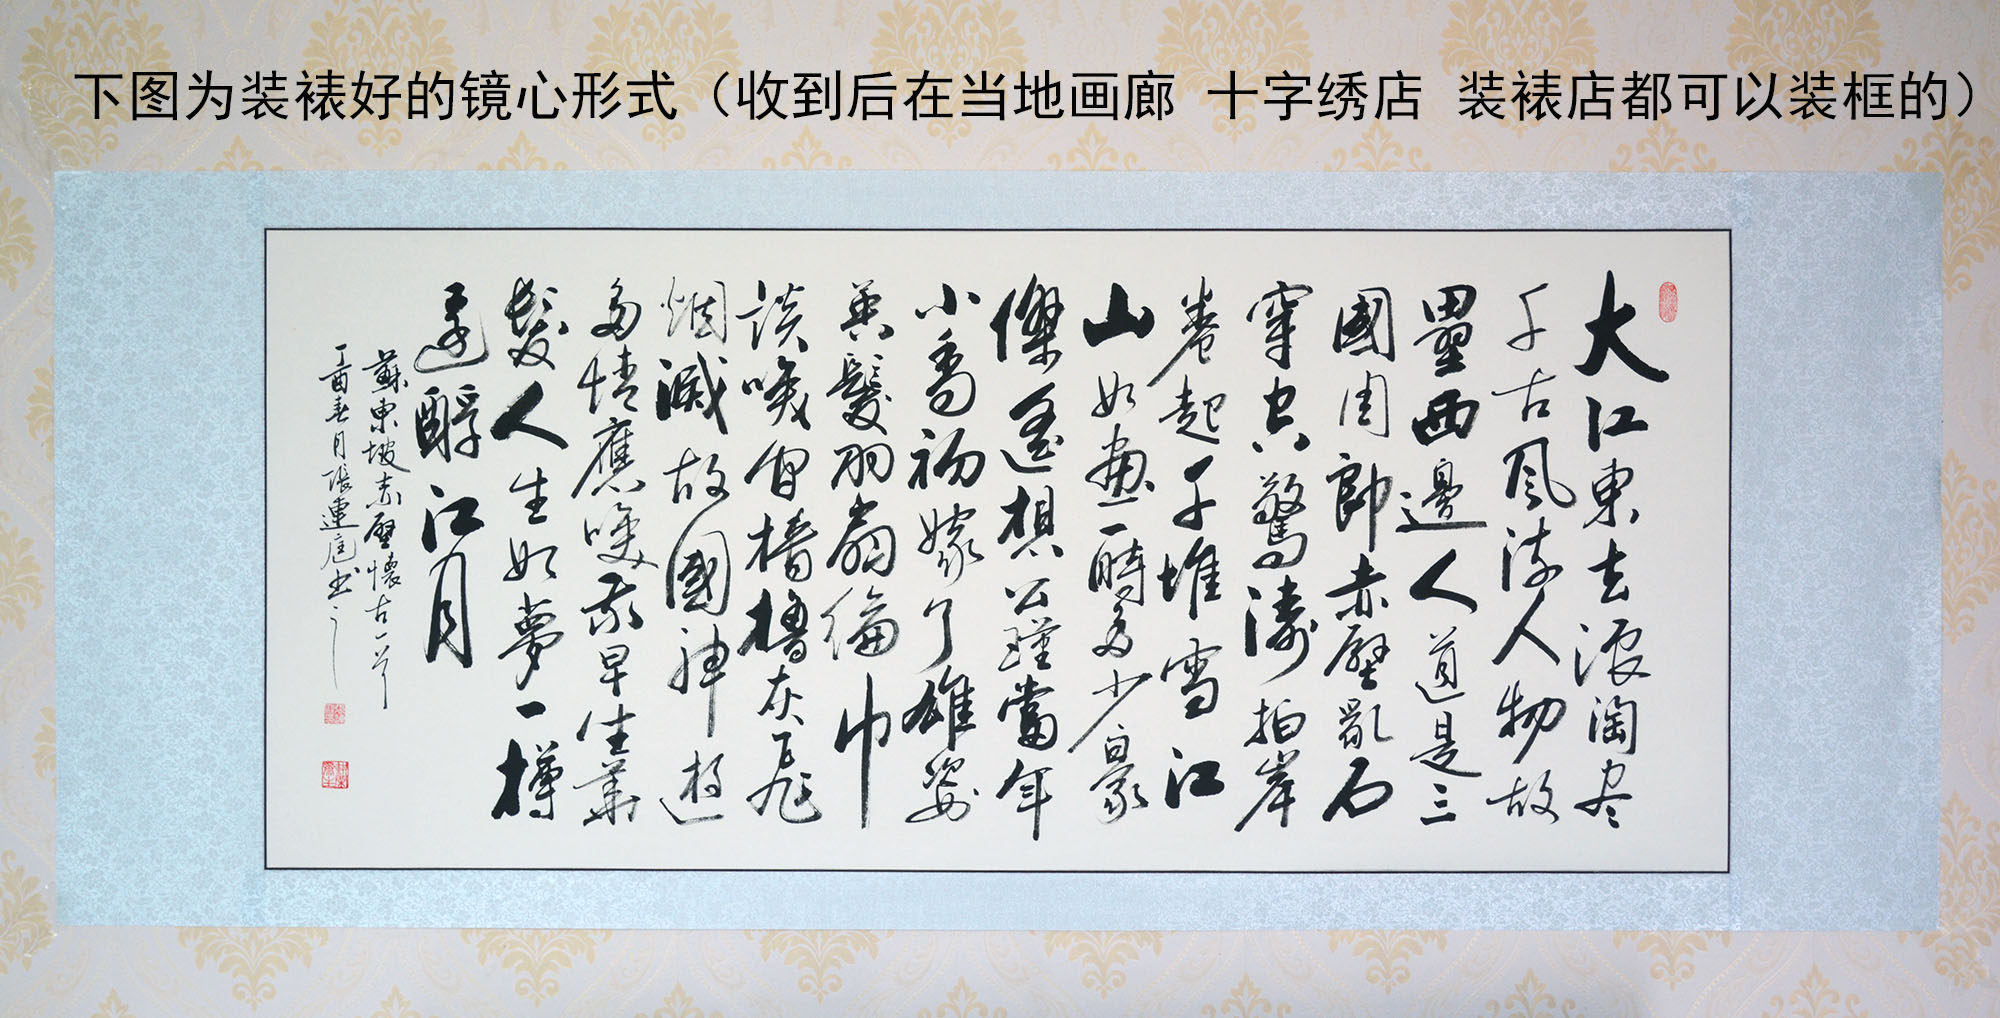 下图为装裱好的镜心形式（收到后在当地画廊 十字绣店 装裱店都可以装框的）
大江東去浪淘尽
千古风流人物故
壘西邊人道是三
國周郎赤壁亂石
穿空驚濤拍岸
卷起千堆雪江
山如畫一時多少豪
傑遥想公瑾當年
小喬初嫁了雄姿
英髮羽扇綸巾
談唤间檣櫓灰飛
烟滅故國神遊
多情應唤我早生華
髮人生如夢一樽
還酹江月
蘇東坡赤壁懷古一首
丁酉春月張連庭书